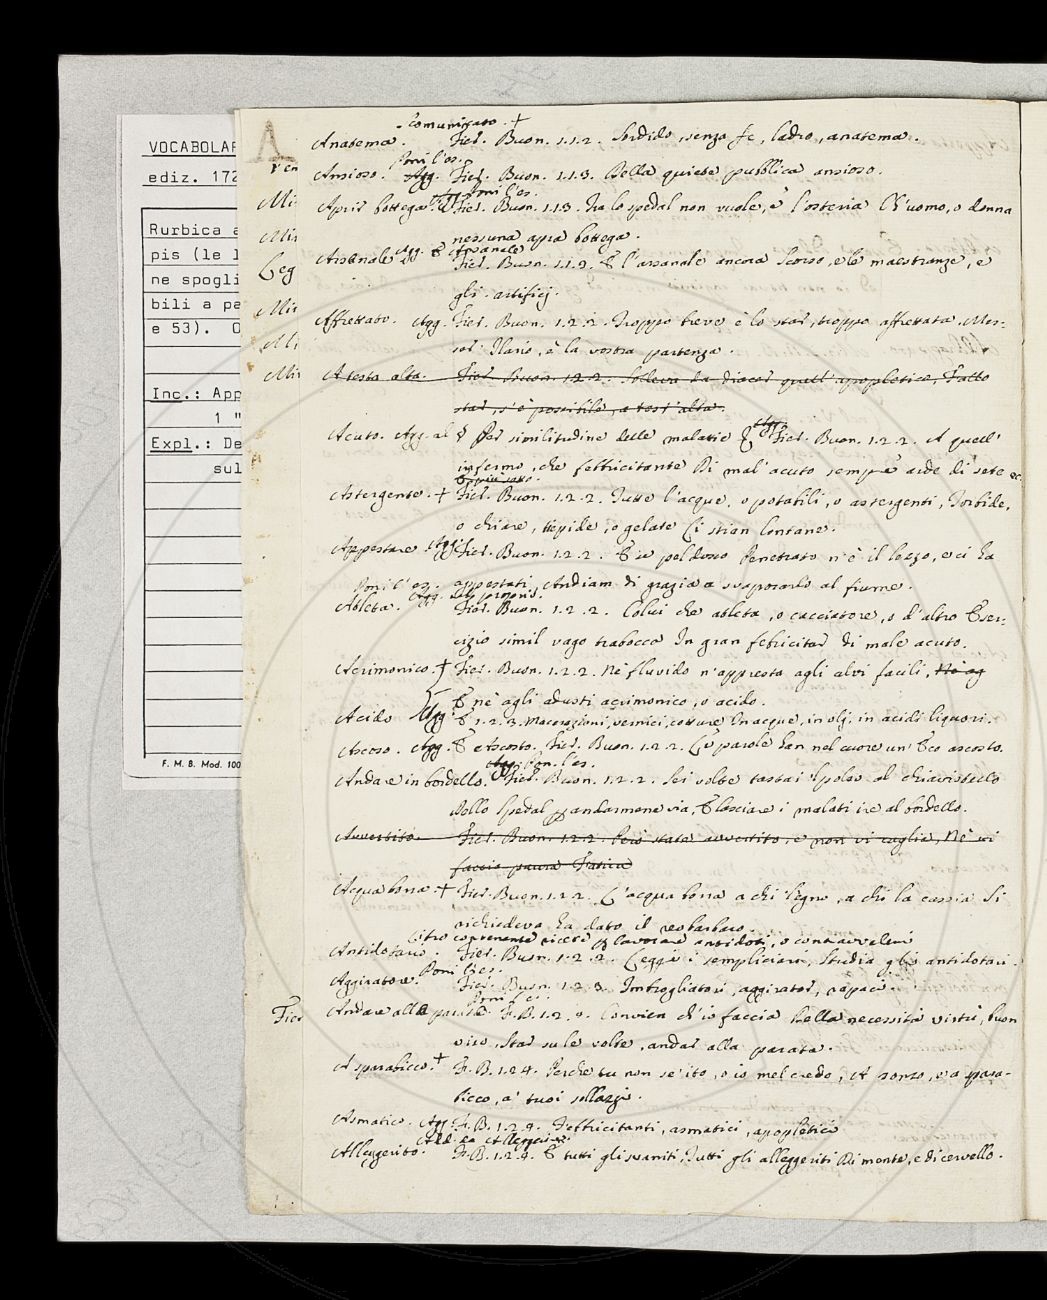 VOCABOLAR
ediz. 172
Rurbica a
pis (le l
ne spogli
bili a pa
e 53). O
Inc.: App
1 "
Expl.: De
sul
F. M. B. Mod. 100
A
Mi
Mi
Leg
Mi
Mi
Fier
Scomunicato. +
Anatema. Fier. Buon. 1.1.2. Sordido, senza fe, ladro, anatema.
Poni l'es.
Ansioso. Agg. Fier. Buon. 1.1.3. Della quiete pubblica ansioso.
Poni l'es.
Aprir bottega. Fier. Buon. 1.1.3. Fra lo spedal non vuole, e l'osteria Ch'uomo, o donna
nessuna apra bottega.
Arsenale Agg. E Arsanale
Fier. Buon. 1.1.9. E l'arsanale ancora Scorso, e le maestranze, e
gli artifici.
Affrettato. Agg. Fier. Buon. 1.2.2. Troppo breve è lo star, troppo affrettata, Mes-
ser Ilario, è la vostra partenza.
A testa alta. Fier. Buon. 1.2.2. Solleva da diacer quell'apopletico, Fatto
star, s'è possibile, a test'alta.
Acuto. Agg. al § Per similitudine delle malatie Fier. Buon. 1.2.2. A quell'
infermo, che febbricitante Di mal'acuto sempre arde di sete ec.
Astergente. + Fier. Buon. 1.2.2. Tutte l'acque, o potabili, o astergenti, Torbide,
o chiare, tiepide, o gelate Ci stian lontane.
Appestare Agg. Fier. Buon. 1.2.2. E'n pel dosso Penetrato n'è il lezzo, e ci ha
appestati, Andiam di grazia a svaporarlo al fiume.
Poni l'es.
Atleta. Fier. Buon. 1.2.2. Colui che atleta, o cacciatore, o d'altro Eser-
cizio simil vago trabocca In gran febbricitar di male acuto.
Acrimonico. + Fier. Buon. 1.2.2. Nè fluvido n'appresta agli alvi facili, Nè ag
E nè agli adusti acrimonico, o acido.
Acido Agg. E 1.2.3. Macerazioni, vernici, cotture In acque, in olj, in acidi liquori.
Ascoso. Agg. E Ascosto. Fier. Buon. 1.2.2. Le parole han nel cuore un'Eco ascosto.
Poni l'es.
Andare in bordello. Fier. Buon. 1.2.2. Sei volte tastai 'l polso al chiavistello
Dello spedal per andarmene via, E lasciare i malati ire al bordello.
Avvertito. Fier. Buon. 1.2.2. Però stata avvertito, e non vi caglia, Nè vi
faccia paura Fatica
Acqua borra + Fier. Buon. 1.2.2. L'acqua borra a chi 'l legno, a chi la cassia Si
richiedeva ha dato, il reobarbaro.
Libro contenente ricette per lavorare antidoti, o contravveleni
Antidotario. Fier. Buon. 1.2.2. Leggi i sempliciari, Studia gli antidotari.
Poni l'es.
Aggiratore. Fier. Buon. 1.2.3. Imbrogliatori, aggirator, rapaci.
Poni l'es.
Andare alla parata. F. B. 1.2.4. Convien ch'io faccia Della necessità virtù, buon
viso, Star su le volte, andar alla parata.
A sparabicco. + F. B. 1.2.4. Perchè tu non se'ito, o io mel credo, A zonzo, o a para-
bicco, a' tuoi sollazzi.
Asmatico. Agg. F. B. 1.2.4. Febbricitanti, asmatici, apopletici
Add. da Alleggerire.
Alleggerito. F. B. 1.2.4. E tutti gli svaniti, Tutti gli alleggeriti Di mente, e di cervello.